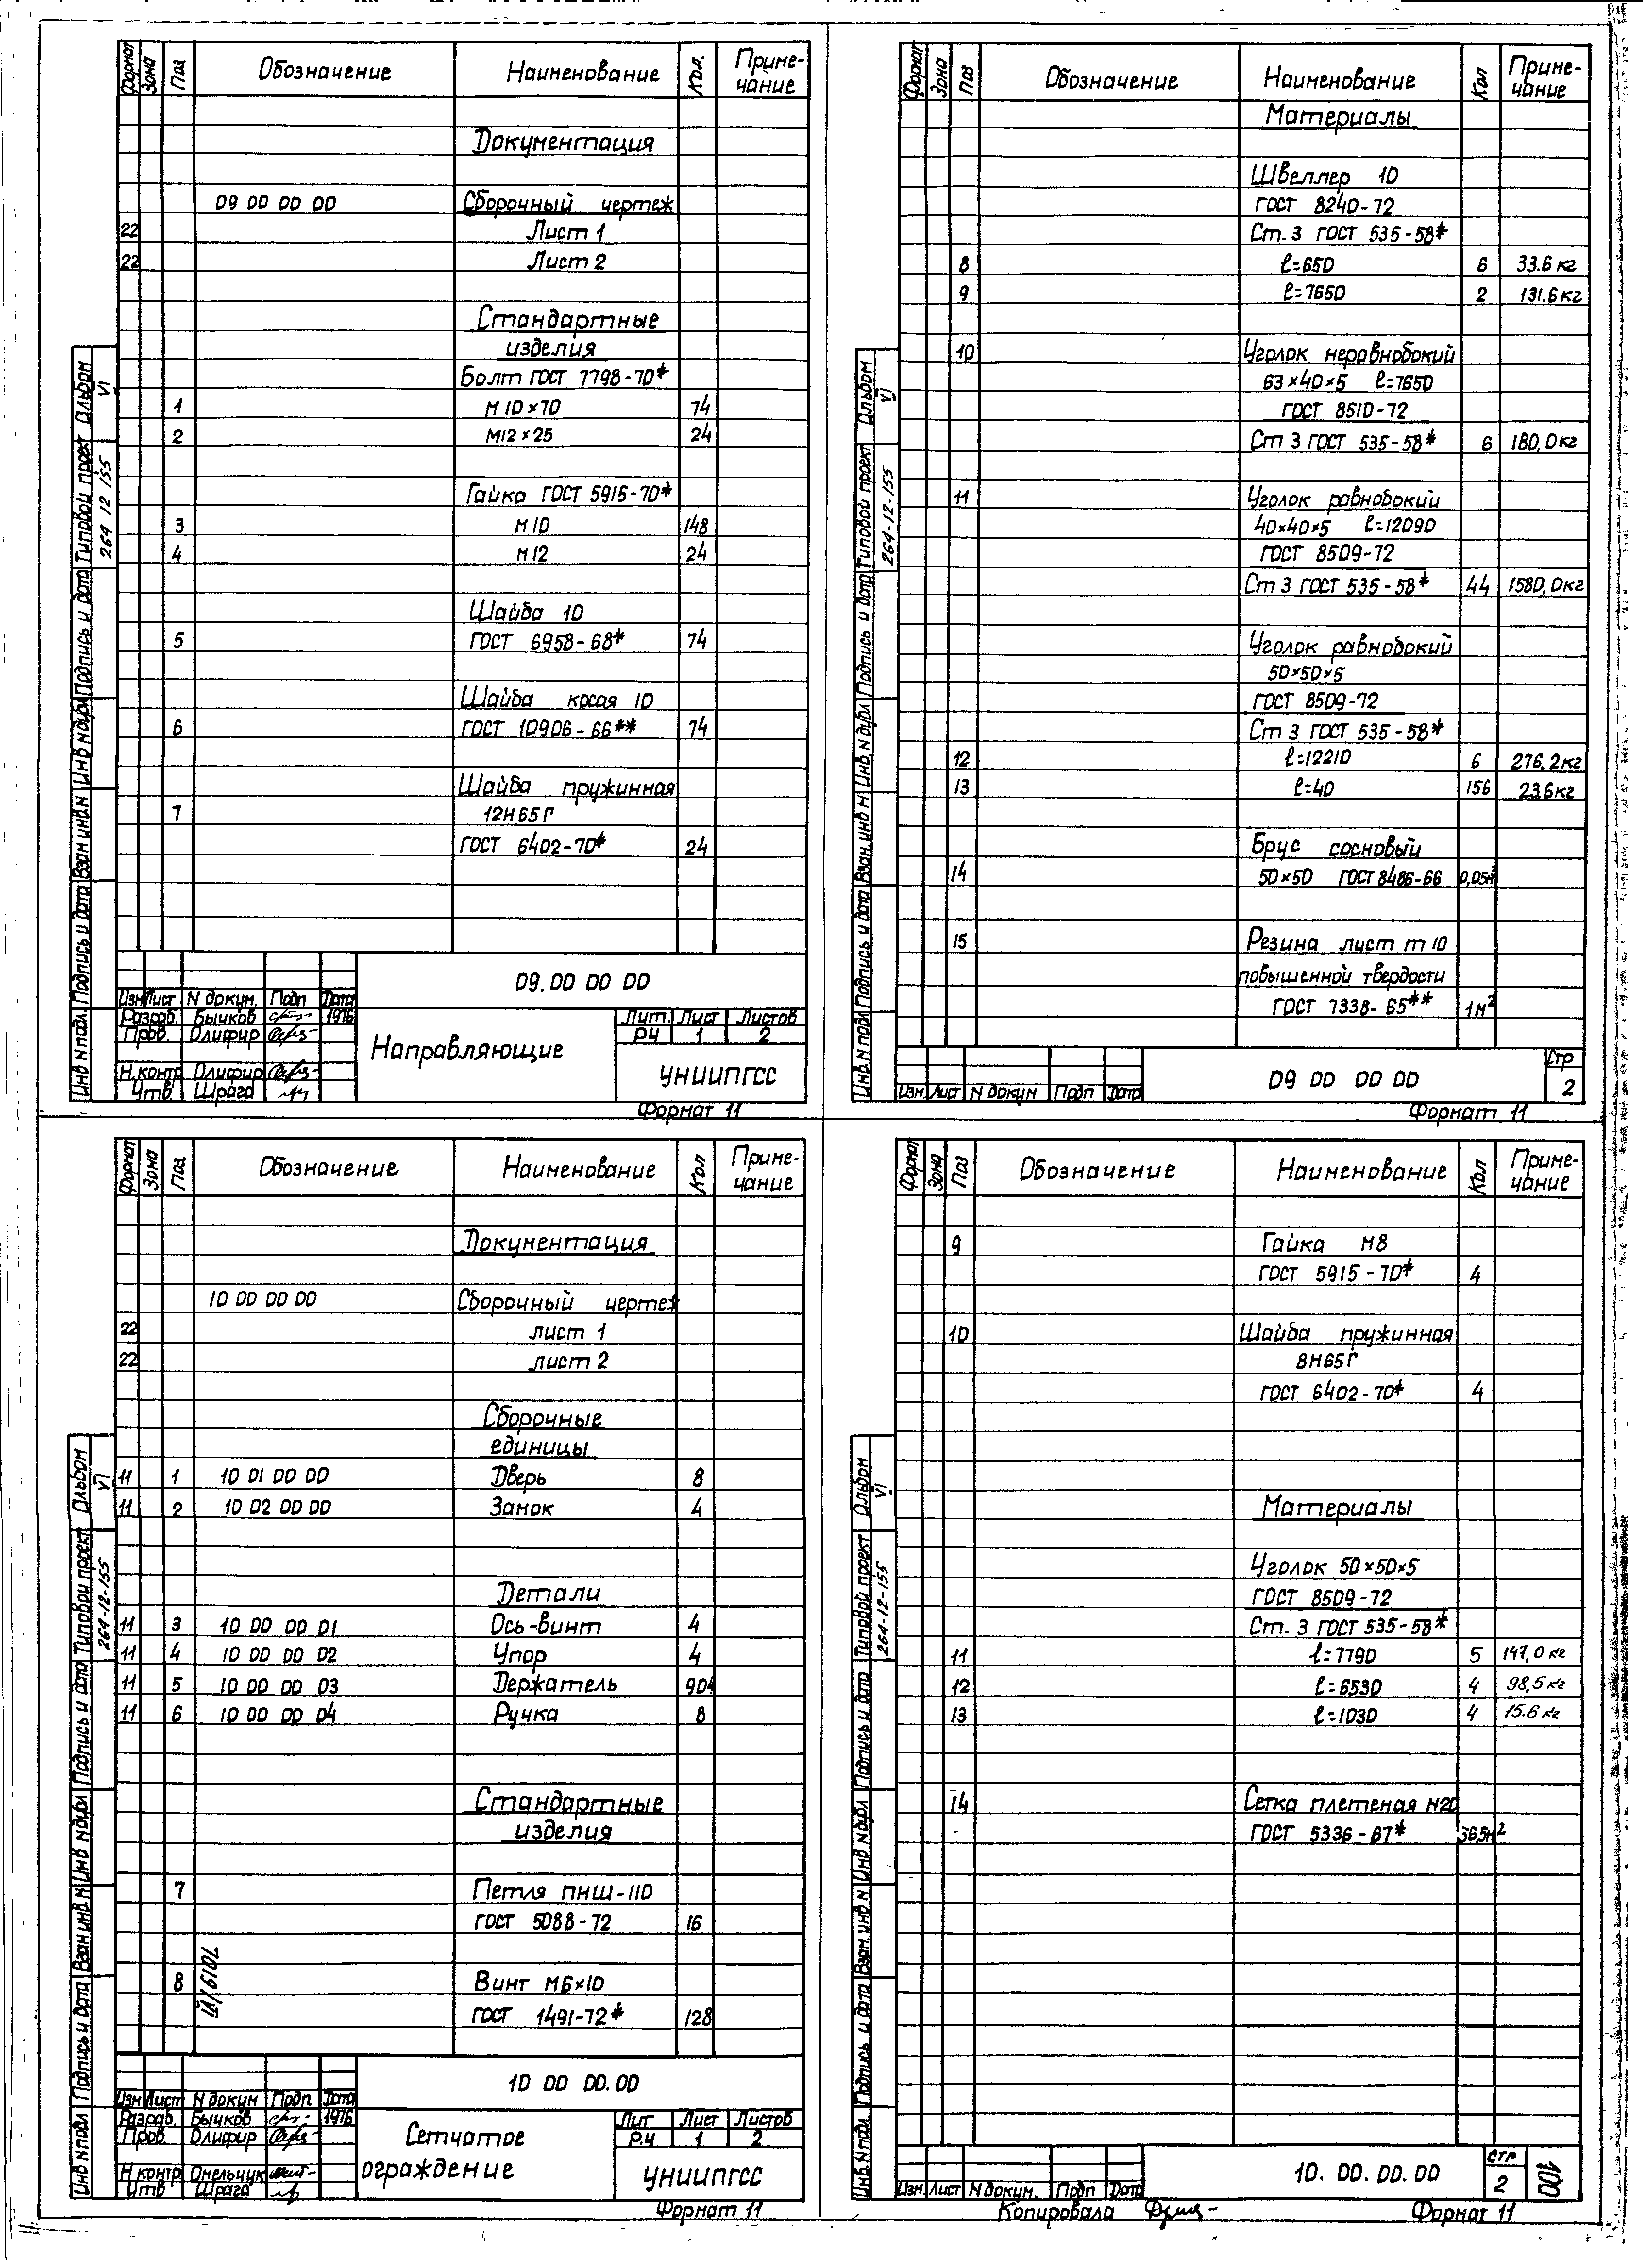 Формат Зона Поз. Обозначение Наименование Кол. Приме-
чание
Документация
09 00 00 00 Сборочный чертеж
22 Лист 1
22 Лист 2
Стандартные
изделия
Болт ГОСТ 7798-70*
1 М10×70 74
2 М12×25 24
Гайка ГОСТ 5915-70*
3 М10 148
4 М12 24
Шайба 10
5 ГОСТ 6958-68* 74
Шайба косая 10
6 ГОСТ 10906-66** 74
Шайба пружинная
7 12Н65Г
ГОСТ 6402-70* 24
Альбом VI
Типовой проект 264 12 155
Подпись и дата
Инв N дубл
Взам инв. N
Подпись и дата
Инв N подл.
09.00 00 00
Изм Лист N докум. Подп Дата
Разраб. Бычков 1976
Пров. Олифир
Н.контр Олифир
Утв. Шрага
Направляющие
Лит. Лист Листов
РЧ 1 2
УНИИПГСС
Формат 11
Формат Зона Поз Обозначение Наименование Кол Приме-
чание
Материалы
Швеллер 10
ГОСТ 8240-72
Ст. 3 ГОСТ 535-58*
8 ℓ=650 6 33.6 кг
9 ℓ=7650 2 131.6 кг
10 Уголок неравнобокий
63×40×5 ℓ=7650
ГОСТ 8510-72
Ст 3 ГОСТ 535-58* 6 180,0 кг
11 Уголок равнобокий
40×40×5 ℓ=12090
ГОСТ 8509-72
Ст 3 ГОСТ 535-58* 44 1580,0кг
Уголок равнобокий
50×50×5
ГОСТ 8509-72
Ст 3 ГОСТ 535-58*
12 ℓ=12210 6 276,2кг
13 ℓ=40 156 23.6 кг
Брус сосновый
14 50×50 ГОСТ 8486-66 0,05м³
15 Резина лист т 10
повышенной твердости
ГОСТ 7338-65** 1м²
Альбом VI
Типовой проект 264-12-155
Подпись и дата
Инв. N дубл
Взам. инв N
Подпись и дата
Инв N подл
Изм. Лист N докум Подп Дата
09 00 00 00
Стр
2
Формат 11
Формат Зона Поз. Обозначение Наименование Кол Приме-
чание
Документация
10 00 00 00 Сборочный чертеж
22 лист 1
22 лист 2
Сборочные
единицы
11 1 10 01 00 00 Дверь 8
11 2 10 02 00 00 Замок 4
Детали
11 3 10 00 00 01 Ось-винт 4
11 4 10 00 00 02 Упор 4
11 5 10 00 00 03 Держатель 904
11 6 10 00 00 04 Ручка 8
Стандартные
изделия
7 Петля ПНШ-110
ГОСТ 5088-72 16
8 Винт М6×10
ГОСТ 1491-72* 128
Альбом VI
Типовой проект 264-12-155
Подпись и дата
Инв N дубл
Взам инв. N
Подпись и дата
Инв N подл
10 00 00.00
Изм Лист N докум Подп Дата
Разраб. Бычков 1976
Пров. Олифир
Н контр Омельчук
Утв Шрага
Сетчатое
ограждение
Лит Лист Листов
Р.Ч 1 2
УНИИПГСС
Формат 11
Формат Зона Поз Обозначение Наименование Кол Приме-
чание
9 Гайка М8
ГОСТ 5915-70* 4
10 Шайба пружинная
8Н65Г
ГОСТ 6402-70* 4
Материалы
Уголок 50×50×5
ГОСТ 8509-72
Ст. 3 ГОСТ 535-58*
11 ℓ=7790 5 147,0 кг
12 ℓ=6530 4 98,5 кг
13 ℓ=1030 4 15.6 кг
14 Сетка плетеная N20
ГОСТ 5336-67*
Альбом VI
Типовой проект 264-12-155
Подпись и дата
Инв N дубл
Взам. инв N
Подпись и дата
Инв N подл.
Изм. Лист N докум. Подп Дата
10. 00. 00. 00
стр
2
100
Копировала
Формат 11